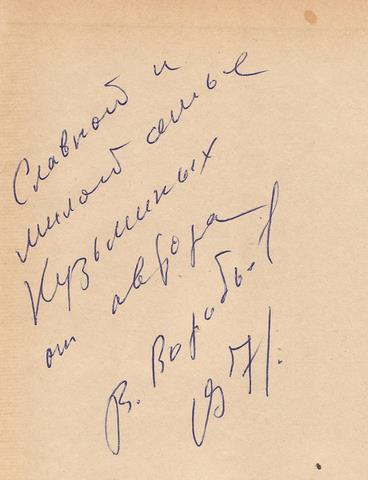 Славной и
милой семье
Кузьминых
от автора
В. Воробьев